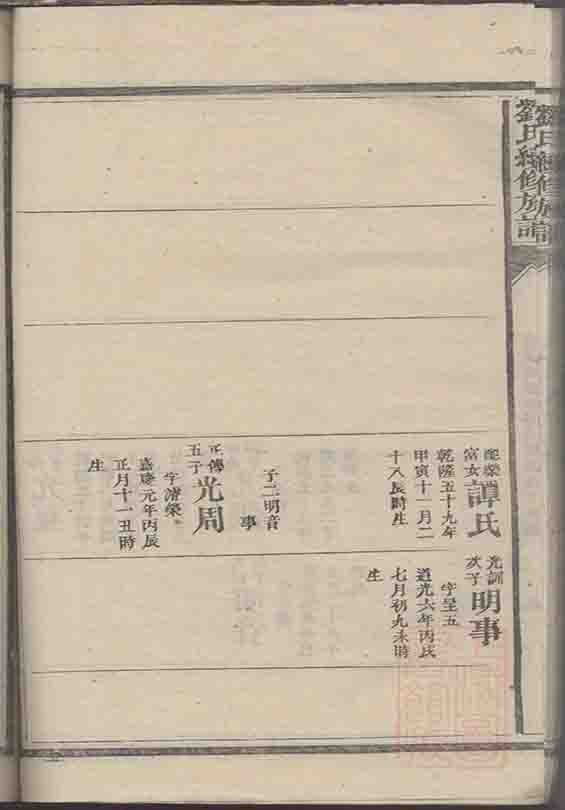 劉氏續修族譜
配榮
富女譚氏
乾隆五十九年
甲寅十一月二
十八辰時生
子二明音
事
正傳
五子光周
字濬榮
嘉慶元年丙辰
正月十一丑時
生
光訓
次子明事
字呈五
道光六年丙戌
七月初九未時
生